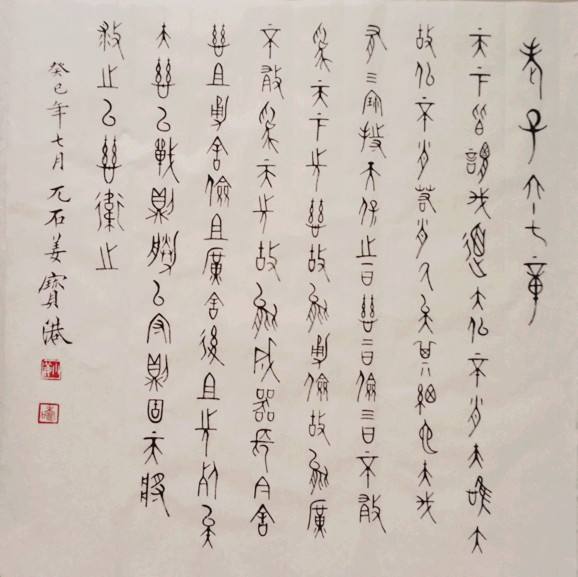 老子六十七章
天下皆謂我道大似不肖夫唯大
故似不肖若肖久矣其細也夫我
有三寶持而保之一曰慈二曰儉三曰不敢
為天下先慈故能勇儉故能廣
不敢為天先故能成器長今舍
慈且勇舍儉且廣舍後且先死矣
夫慈以戰則勝以守則固天將
救之以慈衛之
癸巳年七月 兀石姜寶港